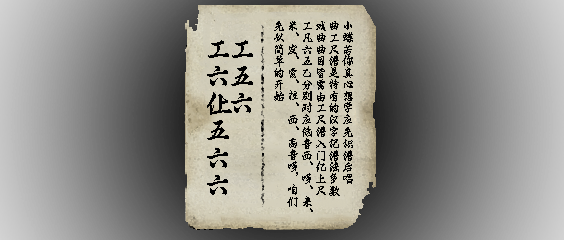 小蝶若你真心想学应先识谱后唱
曲工尺谱是特有的汉字记谱法多数
戏曲曲目皆需由工尺谱入门亿上尺
工凡六五乙分别对应低音西、哆、来、
米、发、索、拉、西、高音哆,咱们
先从简单的开始
工五六
工六仩五六六